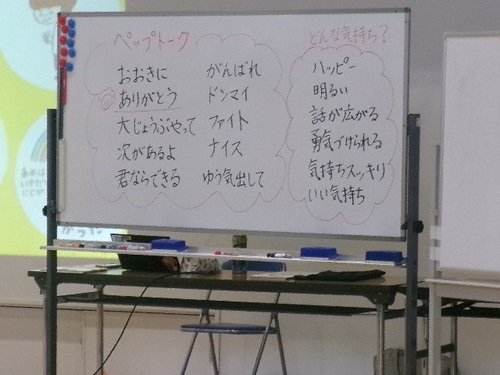 ペップトーク
おおきに
ありがとう
大じょうぶやって
次があるよ
君ならできる
がんばれ
ドンマイ
ファイト
ナイス
ゆう気出して
どんな気持ち?
ハッピー
明るい
話が広がる
勇気づけられる
気持ちスッキリ
いい気持ち